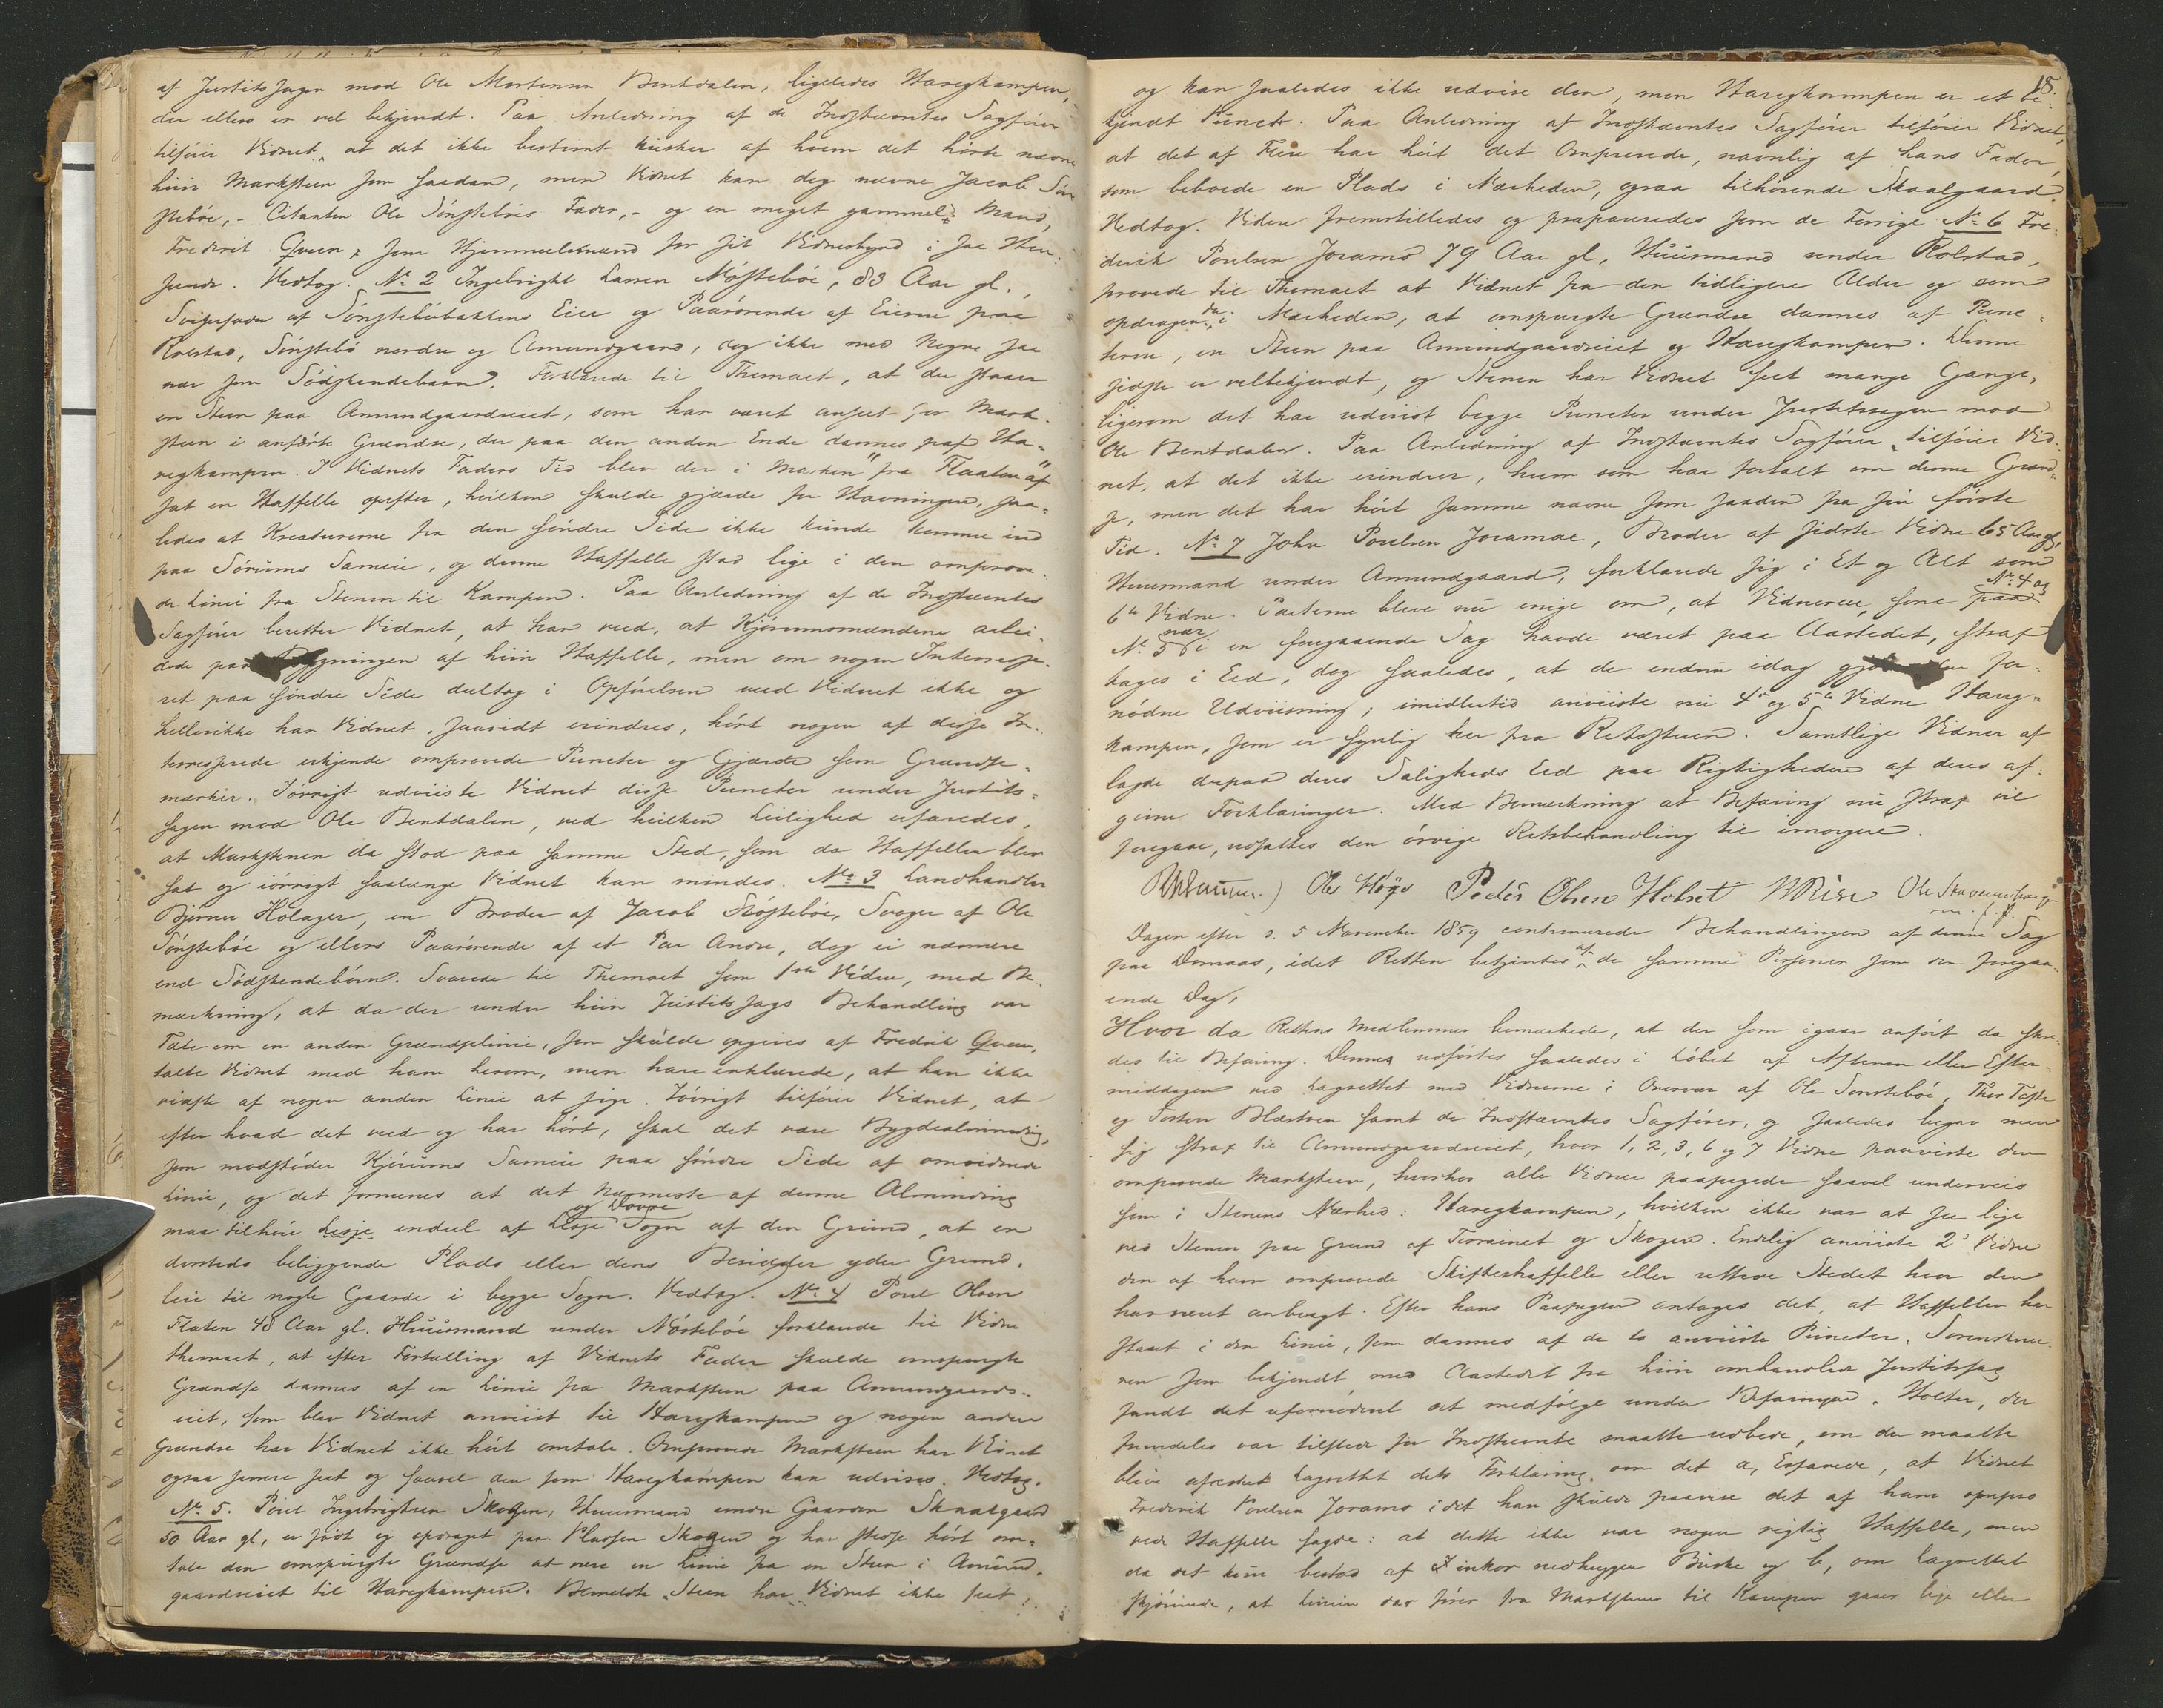 af Justitssagen mod Ole Mortensen Bentdalen, ligeledes Haregkampen,
der ellers er vel bekjendt. Paa Anledning af de Indstævntes Sagfører
tilføier Vidnet, at det ikke bestemt husker af hvem det hørte nævne
hiin Marksteen som saadan, men Vidnet kan dog nævne Jacob Søn
stebøe, - Citanten Ole Sønstebøes Fader, - og en meget gammel Mand,
Fredrik Qveen, som Hjemmelsmænd for sit Vidnesbyrd i saa Hen-
seende. Vedtog. No 2 Ingebright Larsen Nøstebøe, 83 Aar gl.,
Svigerfader af Sønstebøbakkens Eier og Paarørende af Eierne paa
Rolstad, Sønstebø nordre og Amundgaard, dog ikke med Nogen saa
nær som Sødskendebarn. Forklarede til Themaet, at der staaer
en Steen paa Amundgaardseiet, som har været anseet for Mark-
steen i anførte Grændse, der paa den anden Ende dannes af Ha-
regkampen. I Vidnets Faders Tid blev der i Marken "fra Flaaten" af
sat en Haffelle opefter, hvilken skulde gjærde for Havningen, saa-
ledes at Kreaturerne fra den søndre Side ikke kunde komme ind
paa Sørums Sameie, og denne Haffelle stod lige i den ompro­ve-
de Linie fra Stenen til Kampen. Paa Anledning af de Indstævntes
Sagfører beretter Vidnet, at han veed, at Kjørumsmændene arbei-
dede paa Bygningen af hiin Haffelle, men om nogen Interesse-
ret paa søndre Side deltog i Opførelsen veed Vidnet ikke og
hellerikke har Vidnet, saavidt erindres, hørt nogen af disse In-
teresserede erkjende omprovede Puncter og Gjærde som Grændse-
mærker. Iøvrigt udviiste Vidnet disse Puncter under Justits-
sagen mod Ole Bentdalen, ved hvilken Leilighed erfaredes,
at Markstenen da stod paa samme Sted, som da Haffellen blev
sat og iøvrigt saalænge Vidnet kan mindes. No 3 Landhandler
Bjørner Holager, en Broder af Jacob Nøstebøe, Svoger af Ole
Sønstebøe og ellers Paarørende af et Par Andre, dog ei nærmere
end Sødskendebørn. Svarede til Themaet som 1ste Vidne, med Be-
mærkning, at da der under hiin Justitssags Behandling var
Tale om en anden Grændselinie, som skulde opgives af Fredrik Qveen,
talte Vidnet med ham herom, men han erklærede, at han ikke
vidste af nogen anden Linie at sige. Iøvrigt tilføier Vidnet, at
efter hvad det veed og har hørt, skal det være Bygdealminding,
som modstøder Kjørums Sameie paa søndre Side af omvidnede
Linie, og det formenes at det Nærmeste af denne Alminding
og Dovre
maa tilhøre Lesje endeel af Lesje Sogn af den Grund, at en
dersteds beliggende Plads eller dens Besidder yder Grund-
leie til nogle Gaarde i begge Sogn. Vedtog. No 4 Poul Olsen
Flaten 48 Aar gl. Huusmand under Nørstebøe forklarede til Vidne
themaet, at efter Fortælling af Vidnets Fader skulde omspurgte
Grændse dannes af en Linie fra Marksteen paa Amundgaards-
eiet, som blev Vidnet anviist til Haregkampen og nogen anden
Grændse har Vidnet ikke hørt omtale. Omprovede Marksteen har Vidnet
ogsaa senere seet og saavel den som Haregkampen kan udvises. Vedtog.
No 5. Poul Ingebrigtsen Skogen, Huusmand under Gaarden Skaalgaard
50 Aar gl, er født og opdraget paa Pladsen Skogen og har stedse hørt om-
tale den omspurgte Grændse at være en Linie fra en Steen i Amund-
gaardseiet til Haregkampen. Bemeldte Steen har Vidnet ikke seet
18.
og kan saaledes ikke udvise den, men Haregkampen er et be-
kjendt Punct. Paa Anledning af Indstævntes Sagfører tilføier Vidnet,
at det af Flere har hørt det Omprovede, navnlig af hans Fader,
som beboede en Plads i Nærheden, ogsaa tilhørende Skaalgaard.
Vedtog. Videre fremstilledes og præpareredes som de Forrige No 6 Fre-
derik Poulsen Joramo 79 Aar gl, Huusmand under Rolstad,
provede til Themaet at Vidnet fra den tidligere Alder og som
opdragen der i Nærheden, at omspurgte Grændse dannes af Punc-
terne, en Steen paa Amundgaardseiet og Haregkampen. Denne
sidste er velbekjendt, og Stenen har Vidnet seet mange Gange,
ligesom det har udviist begge Puncter under Justitssagen mod
Ole Bentdalen. Paa Anledning af Indstævntes Sagfører tilføier Vid-
net, at det ikke erindrer, hvem som har fortalt om denne Grænd-
se, men det har hørt samme nævne som saadan fra sin første
Tid. No 7 John Poulsen Joramoe, Broder af sidste Vidne 65 Aar gl,
Huusmand under Amundgaard, forklarede sig i Et og Alt som
6te Vidne. Parterne bleve nu enige om, at Vidnerne, som paa No 4 og
No 5 nær i en foregaaende Sag havde været paa Aastedet, strax
tages i Eed, dog saaledes, at de endnu idag gjøre den for-
nødne Udviisning; imidlertid anviiste nu 4de og 5te Vidne Hareg-
kampen, som er synlig her fra Retsstuen. Samtlige Vidner af
lagde derpaa deres Saligheds Eed paa Rigtigheden af deres af-
givne Forklaringer. Med Bemærkning at Befaring nu strax vil
foregaae, udsattes den øvrige Retsbehandling til imorgen.
Ole Høje Peder Olsen Holset
Dagen efter d. 5 November 1859 continuerede Behandlingen af denne Sag
paa Domaas, idet Retten betjentes af de samme Personer som den foregaa-
ende Dag,
Hvor da Rettens Medlemmer bemærkede, at der som igaar anført da skre-
des til Befaring. Denne udførtes saaledes i Løbet af Aftenen eller Efter-
middagen ved Lagrettet med Vidnerne i Overvær af Ole Sønstebøe, Thor Tofte
og Torsten Blæstven samt de Indstævntes Sagfører, og saaledes begav man
sig strax til Amundgaardseiet, hvor 1, 2, 3, 6 og 7 Vidne paaviste den
omprovede Marksteen, hvorhos alle Vidner paapegede saavel underveis
som i Stenens Nærhed: Haregkampen, hvilken ikke var at see lige
ved Stenen paa Grund af Terrainet og Skogen. Endelig anviiste 2det Vidne
den af ham omprovede Skifteshaffelle eller rettere Stedet hvor den
har været anbragt. Efter hans Paapegen antages det, at Haffellen har
staaet i den Linie, som dannes af de to anviiste Puncter. Sorenskrive-
ren som bekjendt med Aastedet fra hiin omhandlede Justitssag
fandt det ufornødent at medfølge under Befaringen. Holter, der
fremdeles var tilstede for Indstævnte maatte udbede, om der maatte
blive afædsket Lagrettet dets Forklaring, om det a, Erfarede, at Vidnet
Frederik Poulsen Joramo idet han skulde paavise det af ham
vede Haffelle sagde: at dette ikke var nogen rigtig Haffelle, men
da det kun bestod af enkor nedhuggen Buske og b, om Lagrettet
skjønnede, at Linien der fører fra Markstenen til Kampen gaaer lige eller